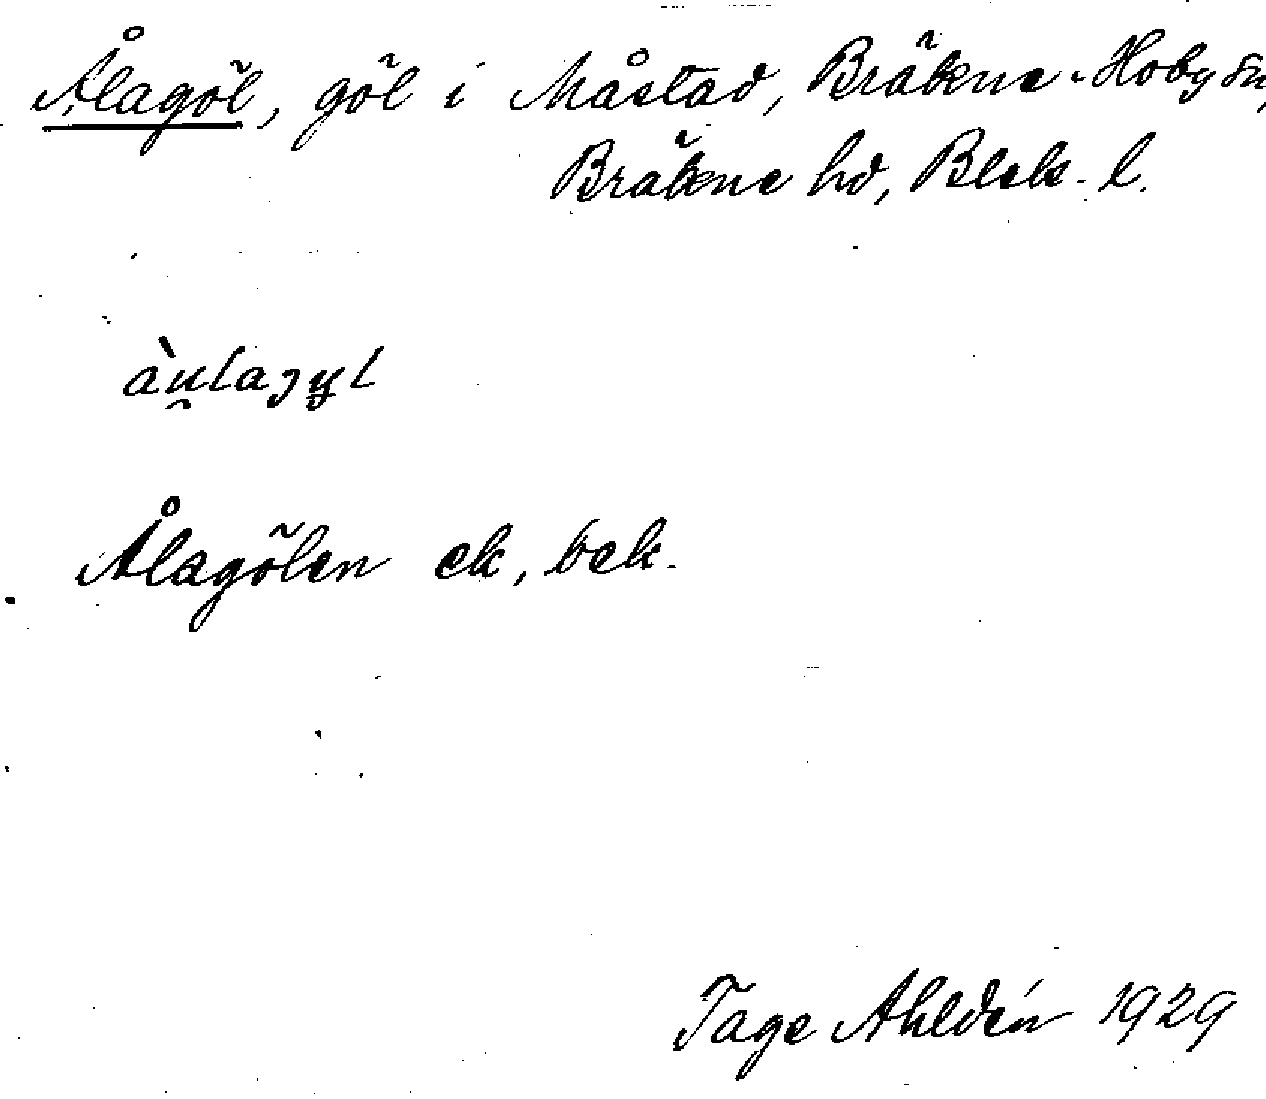 Ålagöl, göl i Måstad, Bräkne-Hoby sn,
Bräkne hd, Blek. l.
àu̯laȷy̵l
Ålagölen ek, bek.
Tage Ahldén 1929